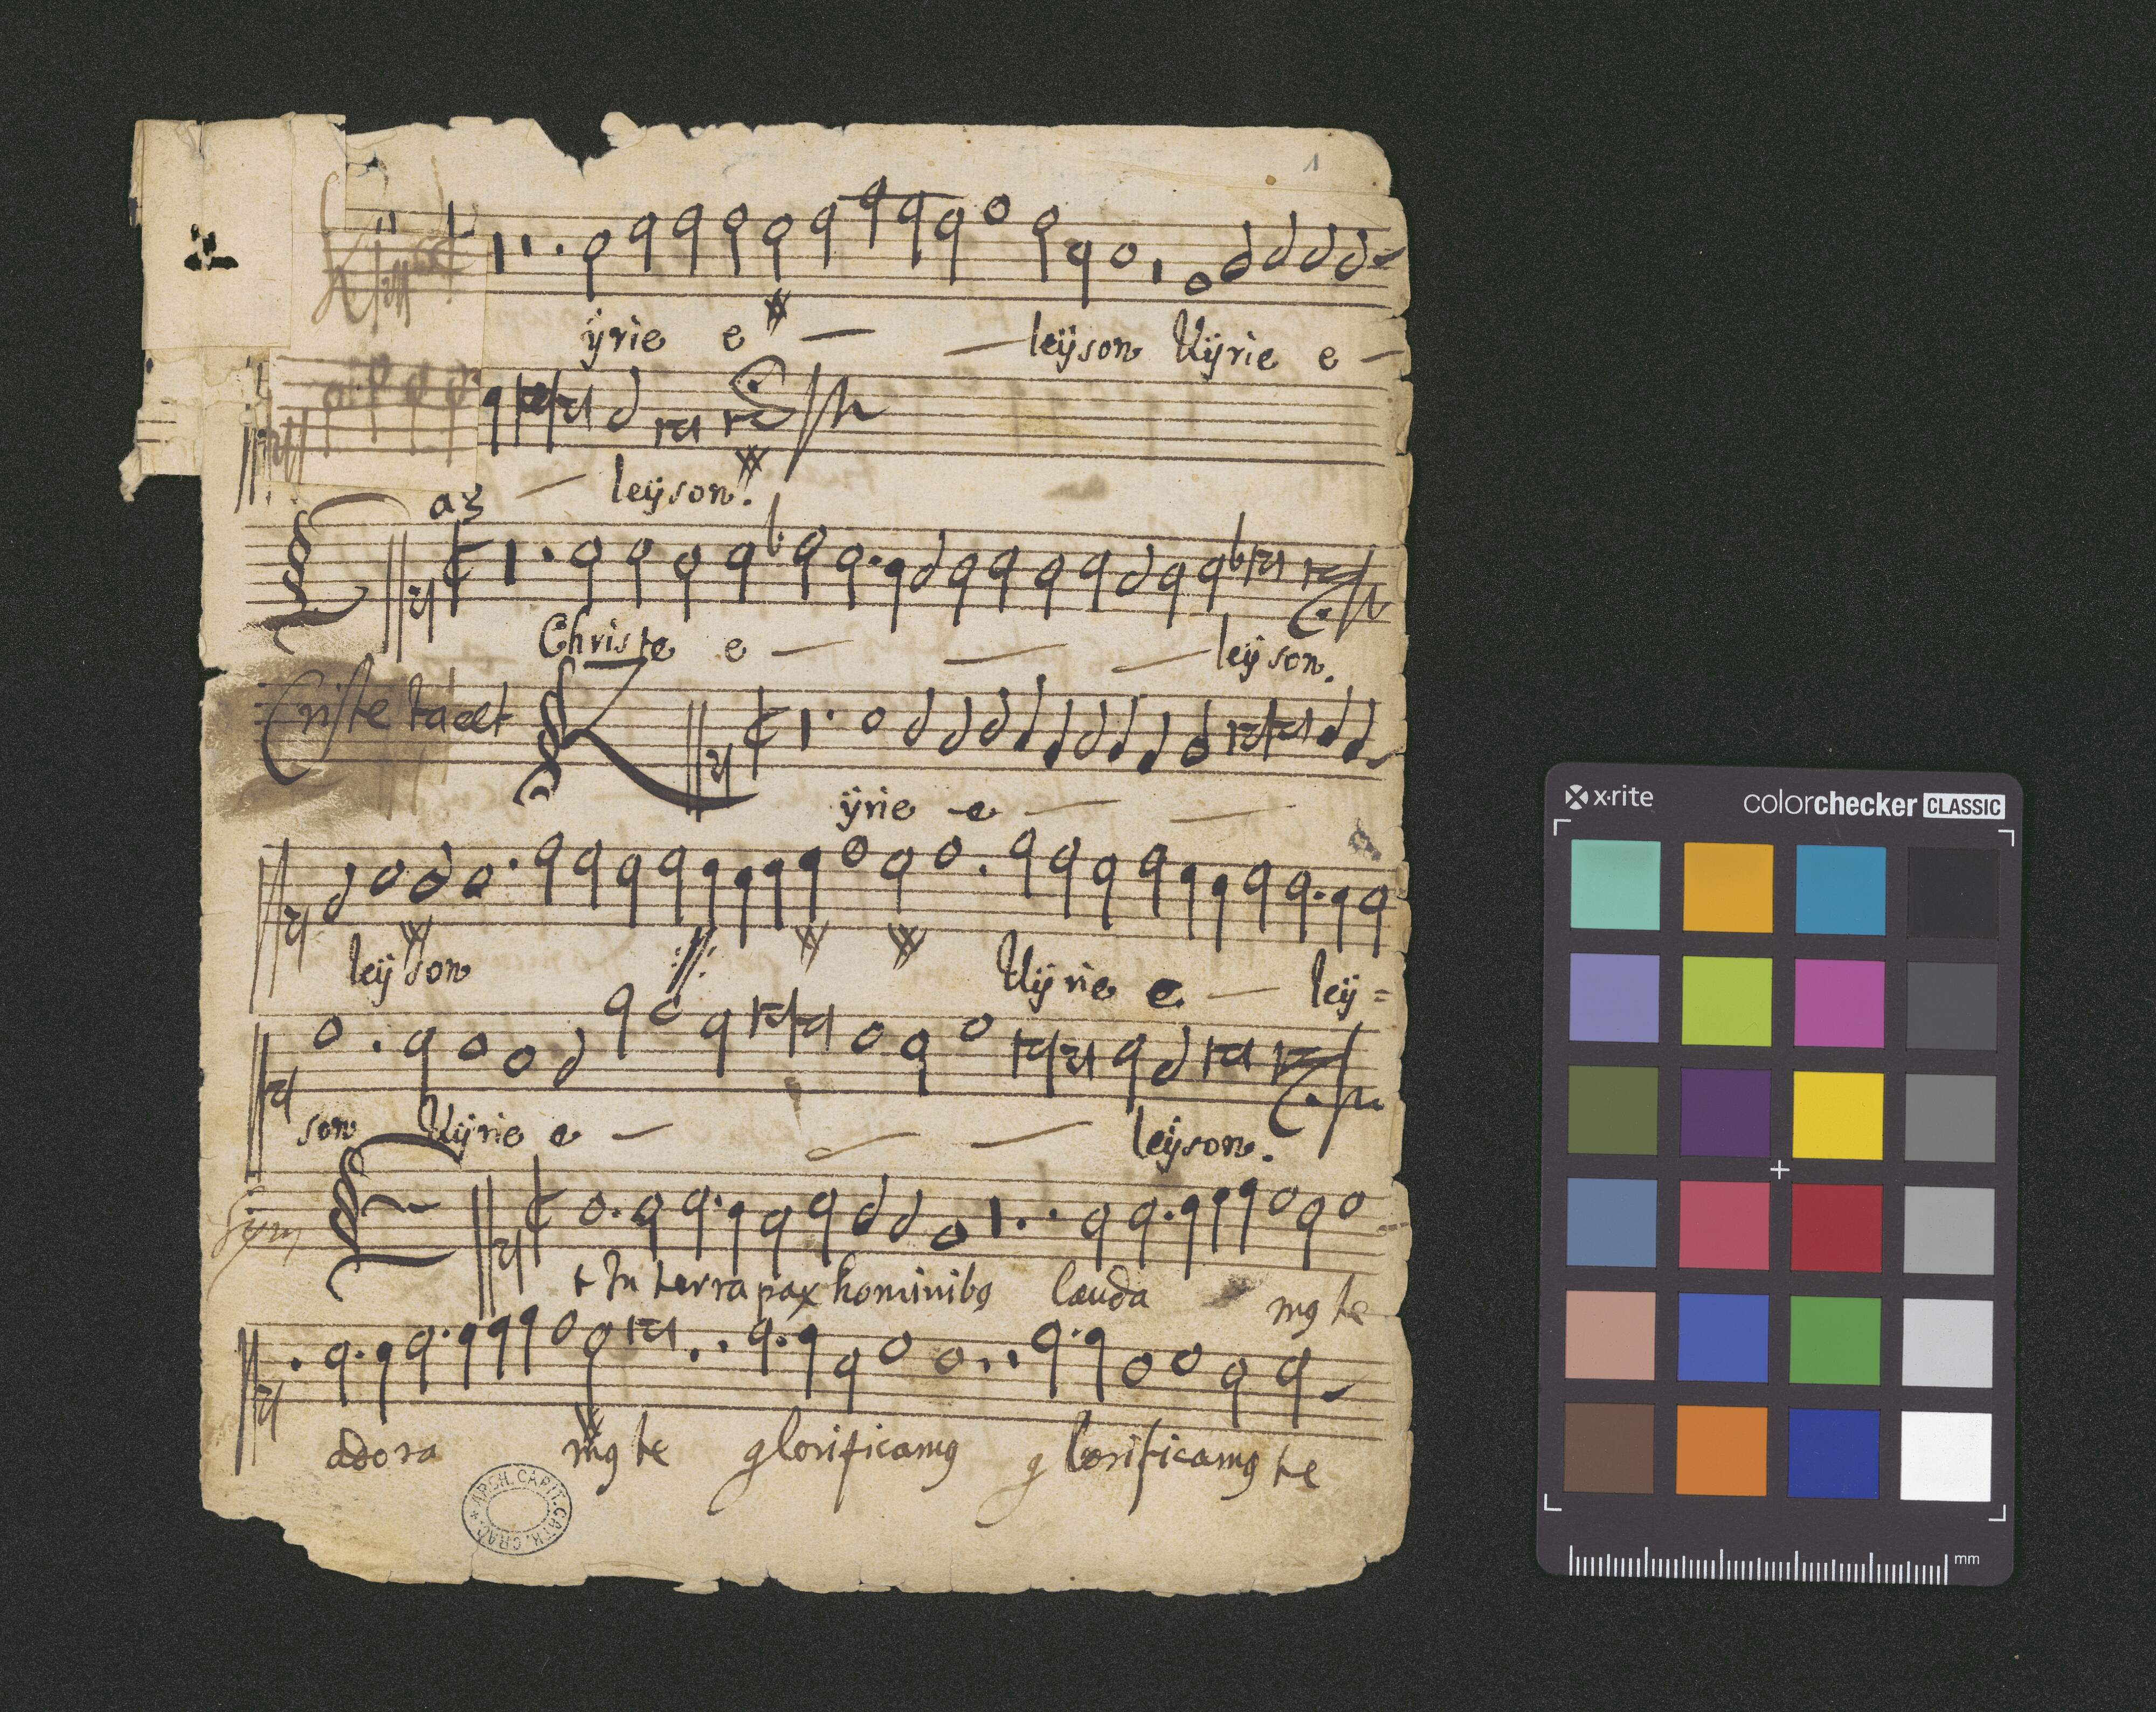 1
ÿrie e leÿson Kÿrie e
leÿson.
a3
Christe e leÿson.
Criste tacet
ÿrie e
leÿson Kÿrie e leÿ=
son Kÿrie e leÿson.
t In terra pax hominibꝯ lauda mꝯ te
adora mꝯ te glorificamꝯ glorificamꝯ te
ARCH. CAPIT. CATH. CRAC.
x·rite
colorchecker CLASSIC
mm